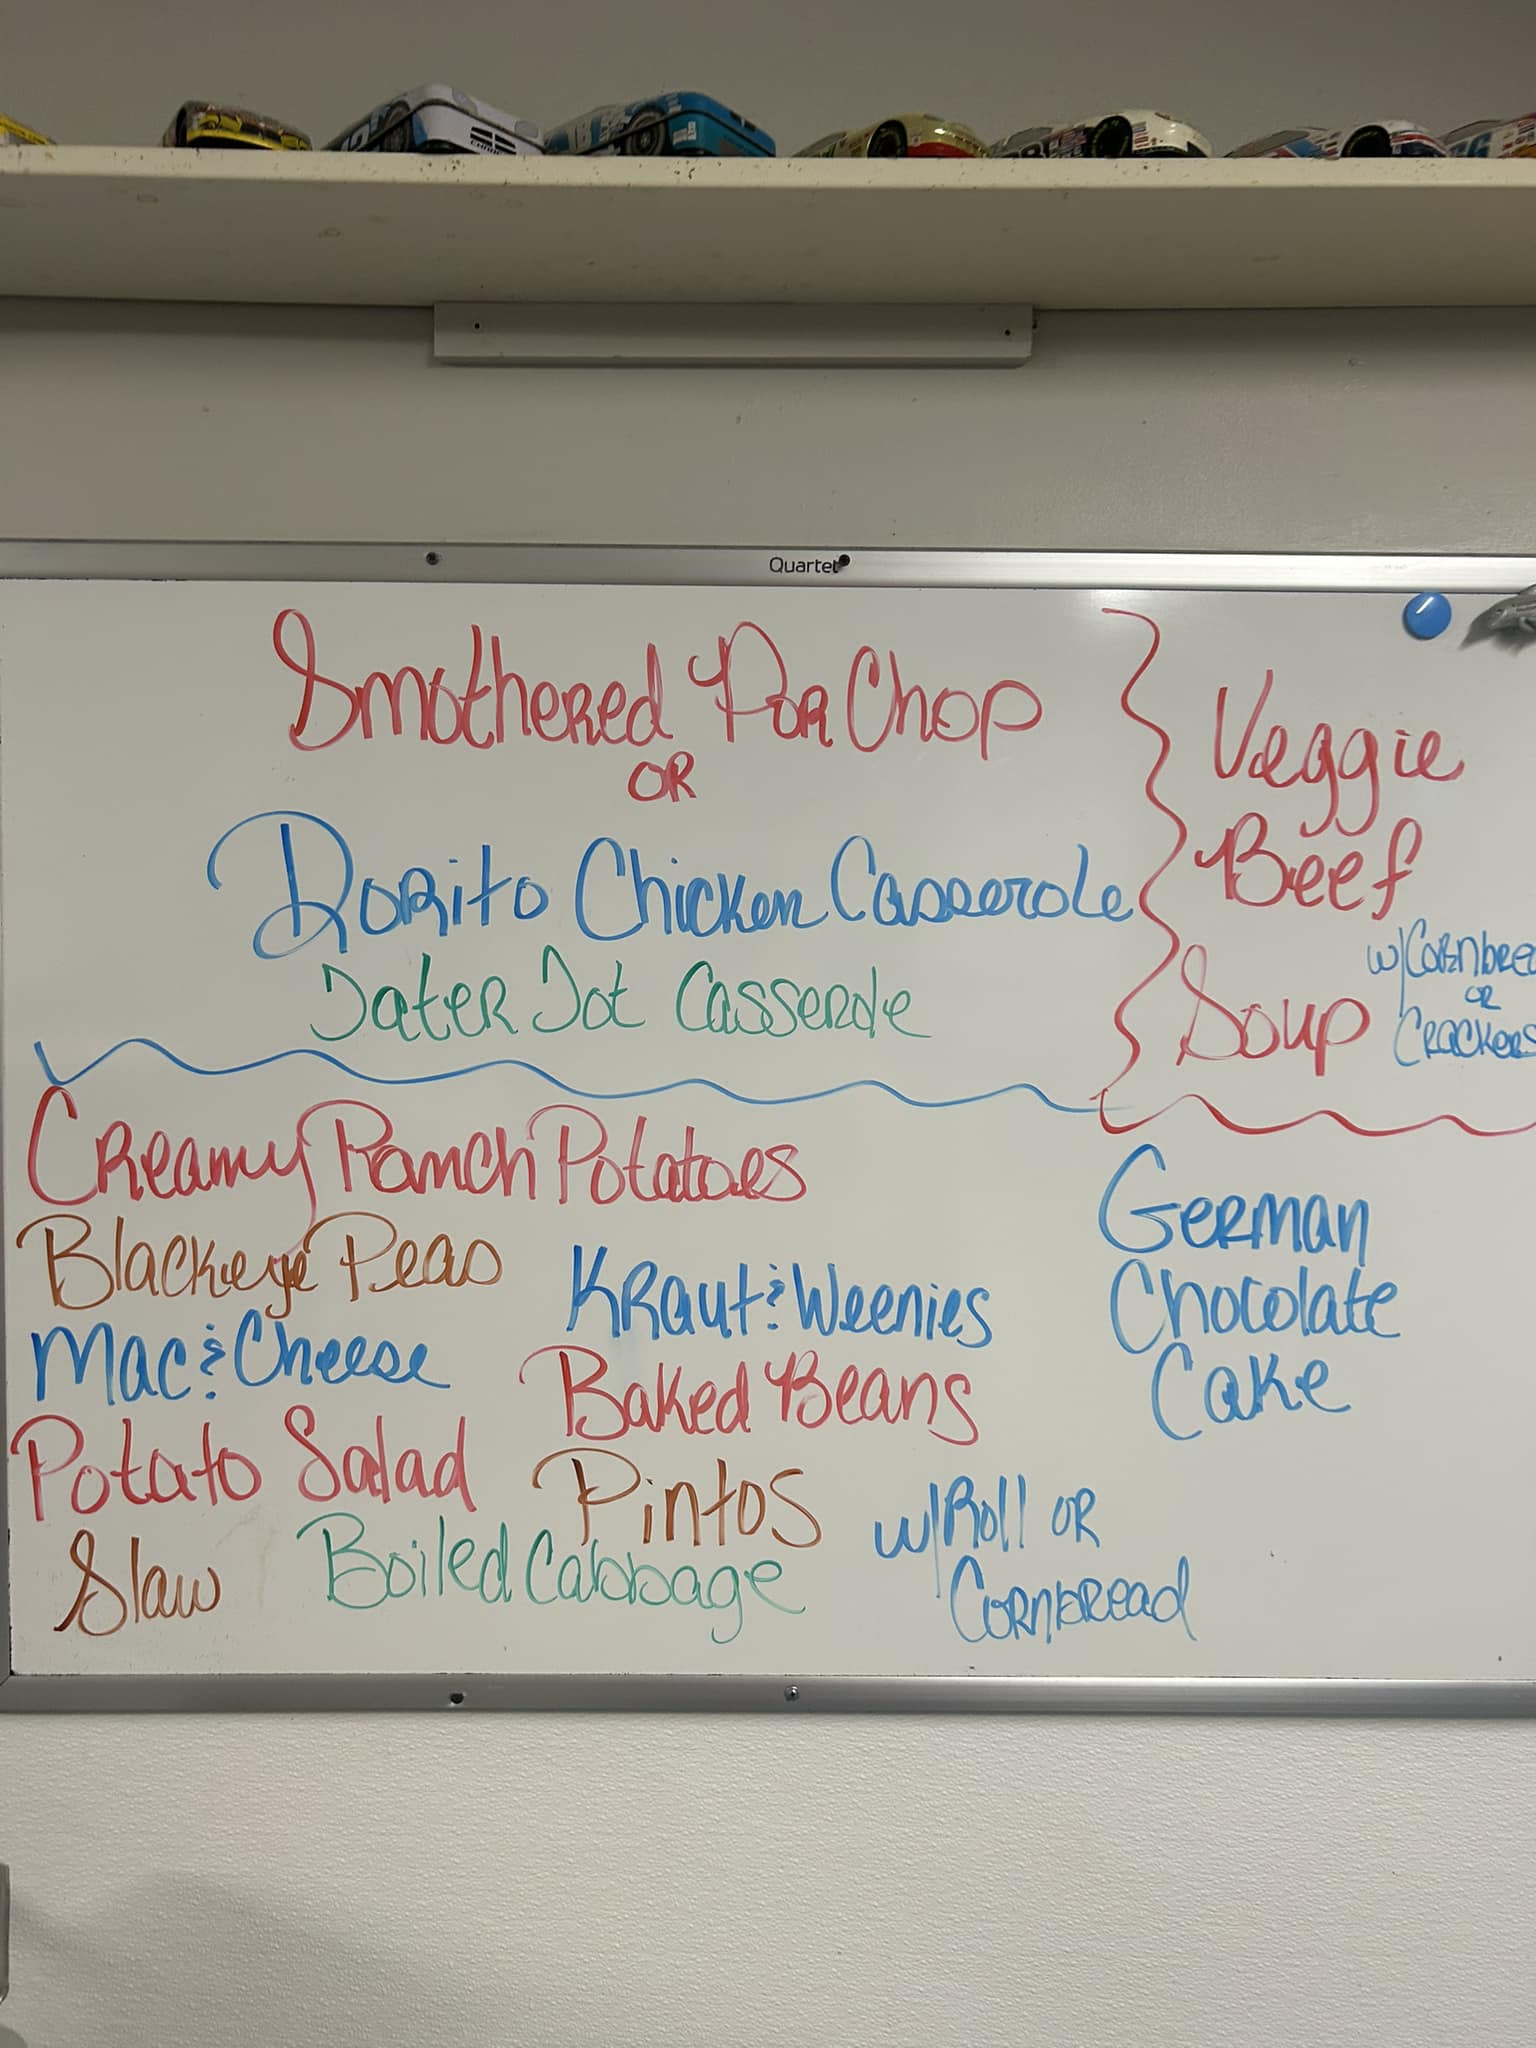 Quartet
Smothered Por Chop
OR
Dorito Chicken Casserole
Tater Tot Casserole
Veggie
Beef
Soup
w/Cornbrea
OR
Crackers
Creamy Ranch Potatoes
Blackeye Peas
Mac & Cheese
Potato Salad
Slaw
Kraut & Weenies
Baked Beans
Pintos
Boiled Cabbage
German
Chocolate
Cake
w/Roll OR
Cornbread